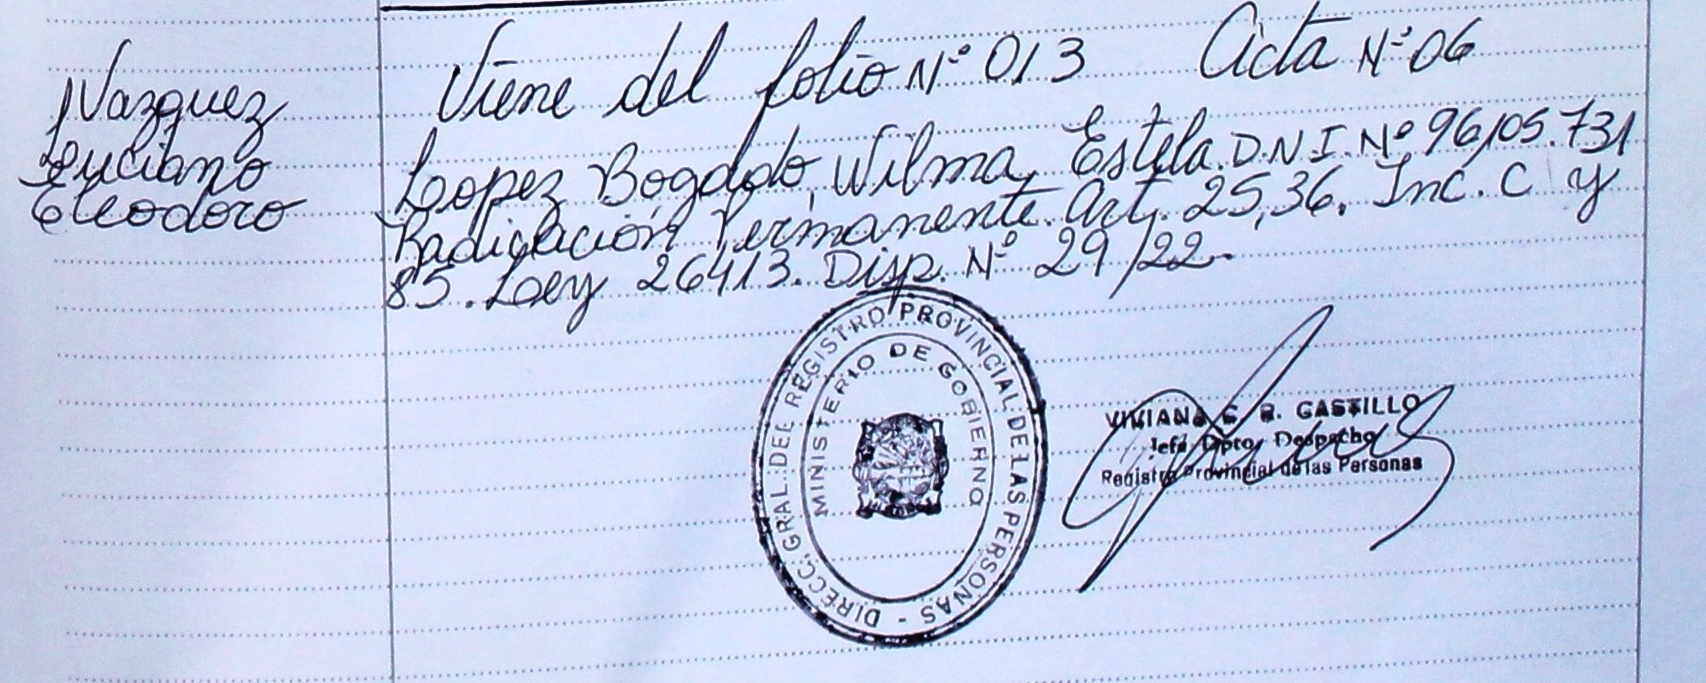 Vazquez
Luciano
Eleodoro
Viene del folio Nº 013 Acta Nº 06
Lopez Bogado, Wilma, Estela. D.N.I. Nº 96105.731
Radicación Permanente. Art. 25,36. Inc. C y
85. Ley 26413. Disp. Nº 29/22.
DIRECC. GRAL. DEL REGISTRO PROVINCIAL DE LAS PERSONAS -
MINISTERIO DE GOBIERNO
VIVIANA C. R. CASTILLO
Jefa Dpto. Despacho
Registro Provincial de las Personas